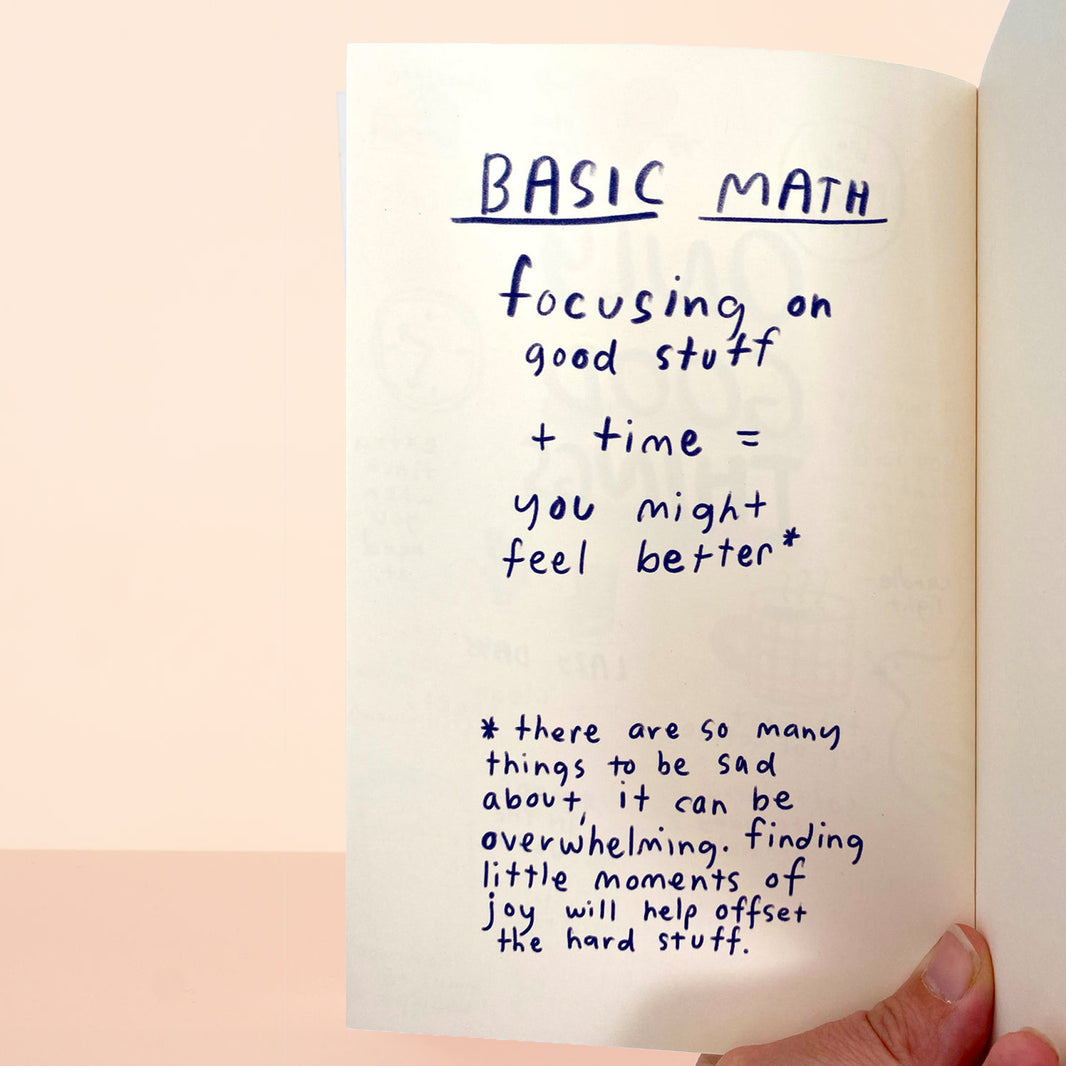 BASIC MATH
focusing on
good stuff
+ time =
you might
feel better*
* there are so many
things to be sad
about, it can be
overwhelming. finding
little moments of
joy will help offset
the hard stuff.
ONLY
GOOD
THINGS
LAZY DAYS
candle
light